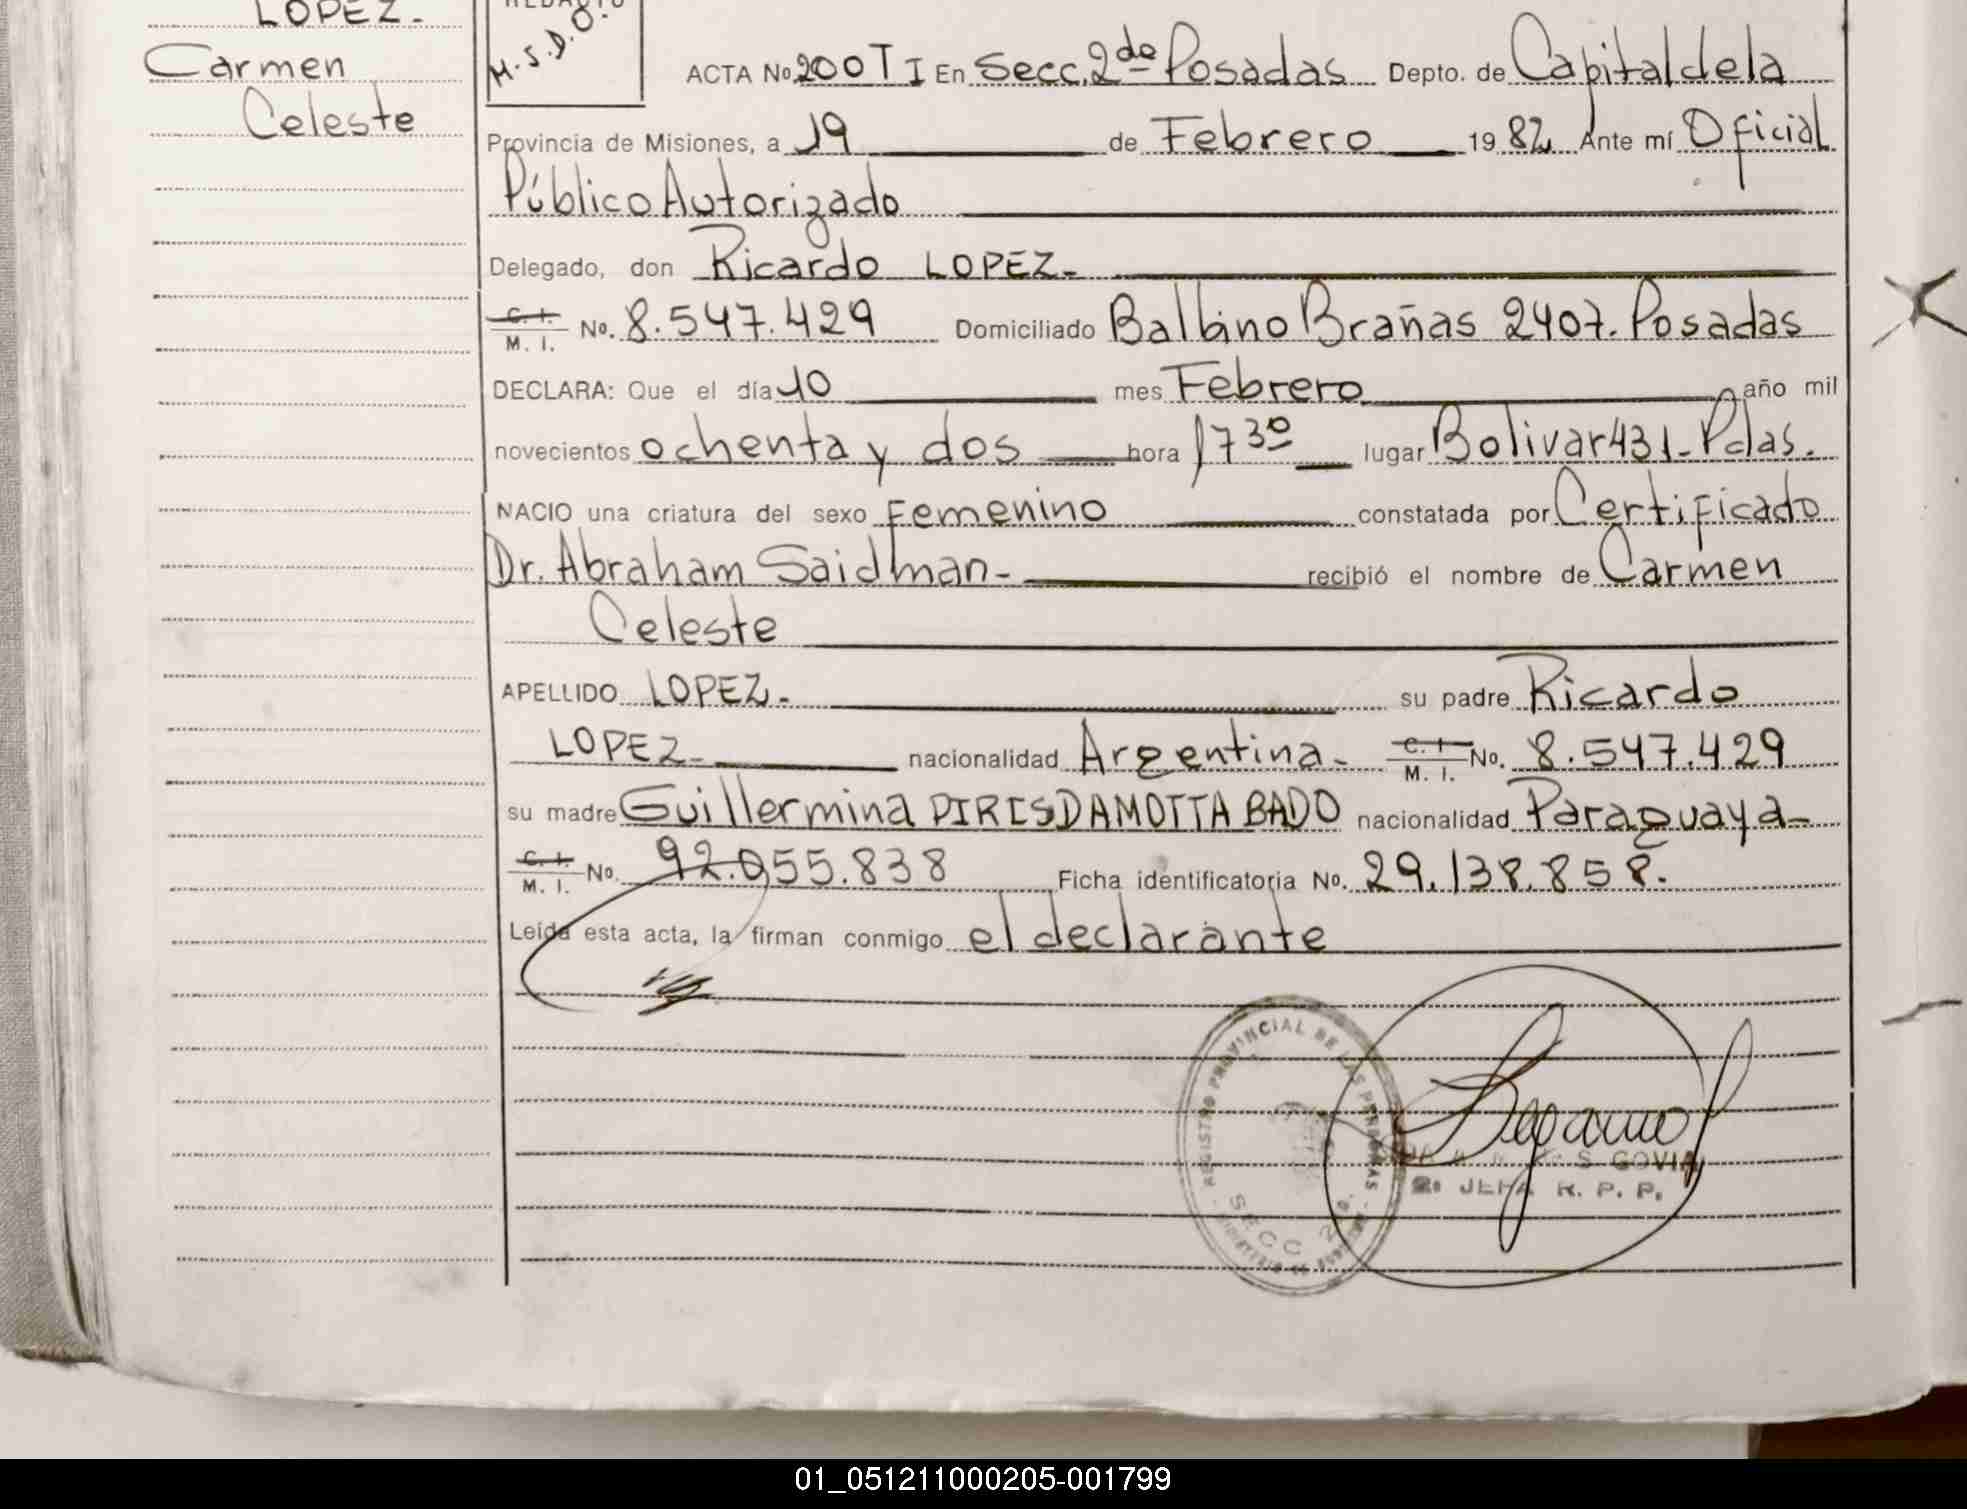 LOPEZ.
Carmen
Celeste
REDACTO
M.S.D.O.
ACTA No. 200 T I En Secc. 2da Posadas Depto. de Capital de la
Provincia de Misiones, a 19 de Febrero 1982 Ante mí Oficial
Público Autorizado
Delegado, don Ricardo LOPEZ.
C. I. M. I. No. 8.547.429 Domiciliado Balbino Brañas 2407. Posadas
DECLARA: Que el día 10 mes Febrero año mil
novecientos ochenta y dos hora 17 30 lugar Bolivar 431 - Pdas.
NACIO una criatura del sexo Femenino constatada por Certificado
Dr. Abraham Saidman - recibió el nombre de Carmen
Celeste
APELLIDO LOPEZ. su padre Ricardo
LOPEZ - nacionalidad Argentina - C. I. M. I. No. 8.547.429
su madre Guillermina PIRIS DAMOTTA BADO nacionalidad Paraguaya -
C. I. M. I. No. 92.055.838 Ficha identificatoria No. 29.138.858.
Leída esta acta, la firman conmigo el declarante
REGISTRO PROVINCIAL DE LAS PERSONAS
SECC 2da.
GOVIA
2ª JEFA R. P. P.
01_051211000205-001799